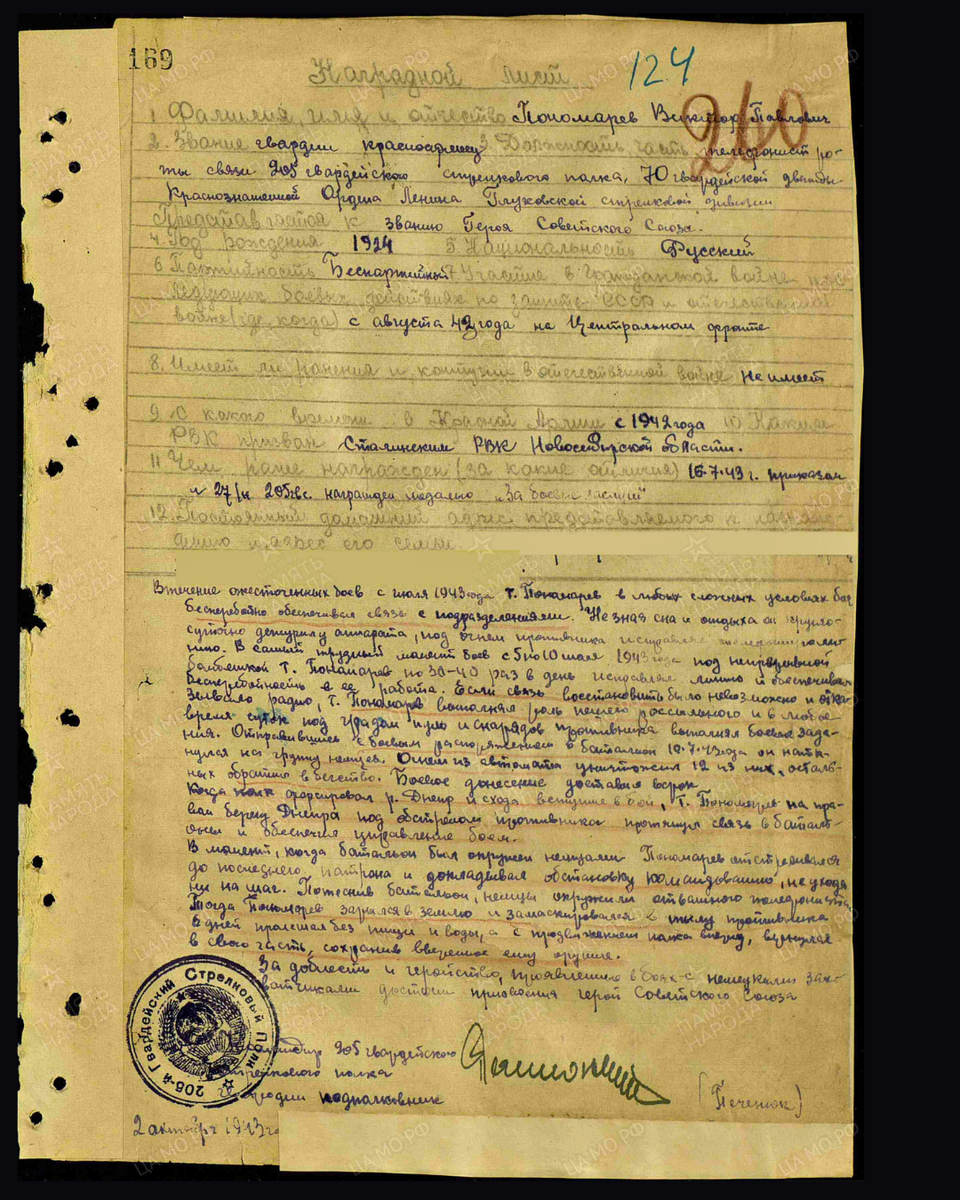 169
124
240
Наградной лист
1 Фамилия, имя и отчество Пономарев Виктор Павлович
2. Звание гвардии красноармеец 3. Должность, часть телефонист ро-
ты связи 205 гвардейского стрелкового полка, 70 гвардейской дважды
Краснознаменной Ордена Ленина Глуховской стрелковой дивизии
Представляется к званию Героя Советского Союза.
4. Год рождения 1924 5. Национальность Русский
6 Партийность Беспартийный 7 Участие в Гражданской войне
последующих боевых действиях по защите СССР и отечественной
войне (где, когда) с августа 42 года на Центральном фронте
8. Имеет ли ранения и контузии в отечественной войне не имеет
9. С какого времени в Красной Армии с 1942 года 10 Каким
РВК призван Сталинским РВК Новосибирской области.
11. Чем ранее награжден (за какие отличия) 16.7.43 г. приказом
№ 27/н 205 гв.с. награжден медалью „За боевые заслуги"
12. Постоянный домашний адрес представляемого к награж-
дению и адрес его семьи.
В течение ожесточенных боев с июля 1943 года т. Пономарев в любых сложных условиях боя
бесперебойно обеспечивал связь с подразделениями. Не зная сна и отдыха он кругло-
суточно дежурил у аппарата, под огнем противника исправлял телефонную ли-
нию. В самый трудный момент боев с 5 по 10 июля 1943 года под непрерывной
бомбежкой т. Пономарев по 30-40 раз в день исправлял линию и обеспечивал
бесперебойность в ее работе. Если связь восстановить было невозможно и отка-
зывало радио, т. Пономарев выполнял роль пешего россыльного и в любое
время суток под градом пуль и снарядов противника выполнял боевые зада-
ния. Отправившись с боевым распоряжением в батальон 10.7.43 года он натк-
нулся на группу немцев. Огнем из автомата уничтожил 12 из них, осталь-
ных обратил в бегство. Боевое донесение доставил в срок.
Когда полк форсировал р. Днепр и сходу вступил в бой, т. Пономарев на пра-
вом берегу Днепра под обстрелом противника протянул связь с баталь-
оном и обеспечил управление боем.
В момент, когда батальон был окружен немцами Пономарев отстреливался
до последнего патрона и докладывал обстановку командованию, не уходя
ни на шаг. Потеснив батальон, немцы окружили отважного телефониста
Тогда Пономарев зарылся в землю и замаскировался в тылу противника
2 дней пролежал без пищи и воды, а с продвижением полка вперед, вернулся
в свою часть, сохранив вверенное ему оружие.
За доблесть и геройство, проявленные в боях с немецкими зах-
ватчиками достоин присвоения герой Советского Союза
205-й Гвардейский Стрелковый Полк
Командир 205 гвардейского
стрелкового полка
гвардии подполковник
(Печенюк)
2 октября 1943 го